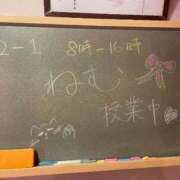 2-1 8時-16時
ねむ
授業中